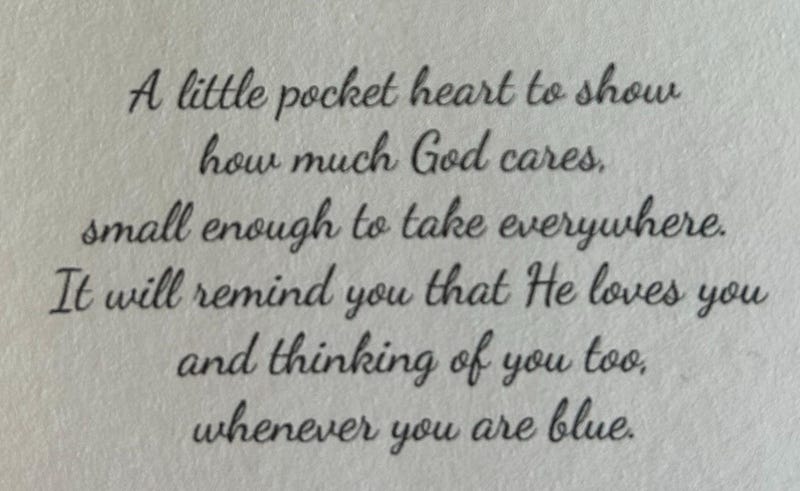 A little pocket heart to show
how much God cares,
small enough to take everywhere.
It will remind you that He loves you
and thinking of you too,
whenever you are blue.